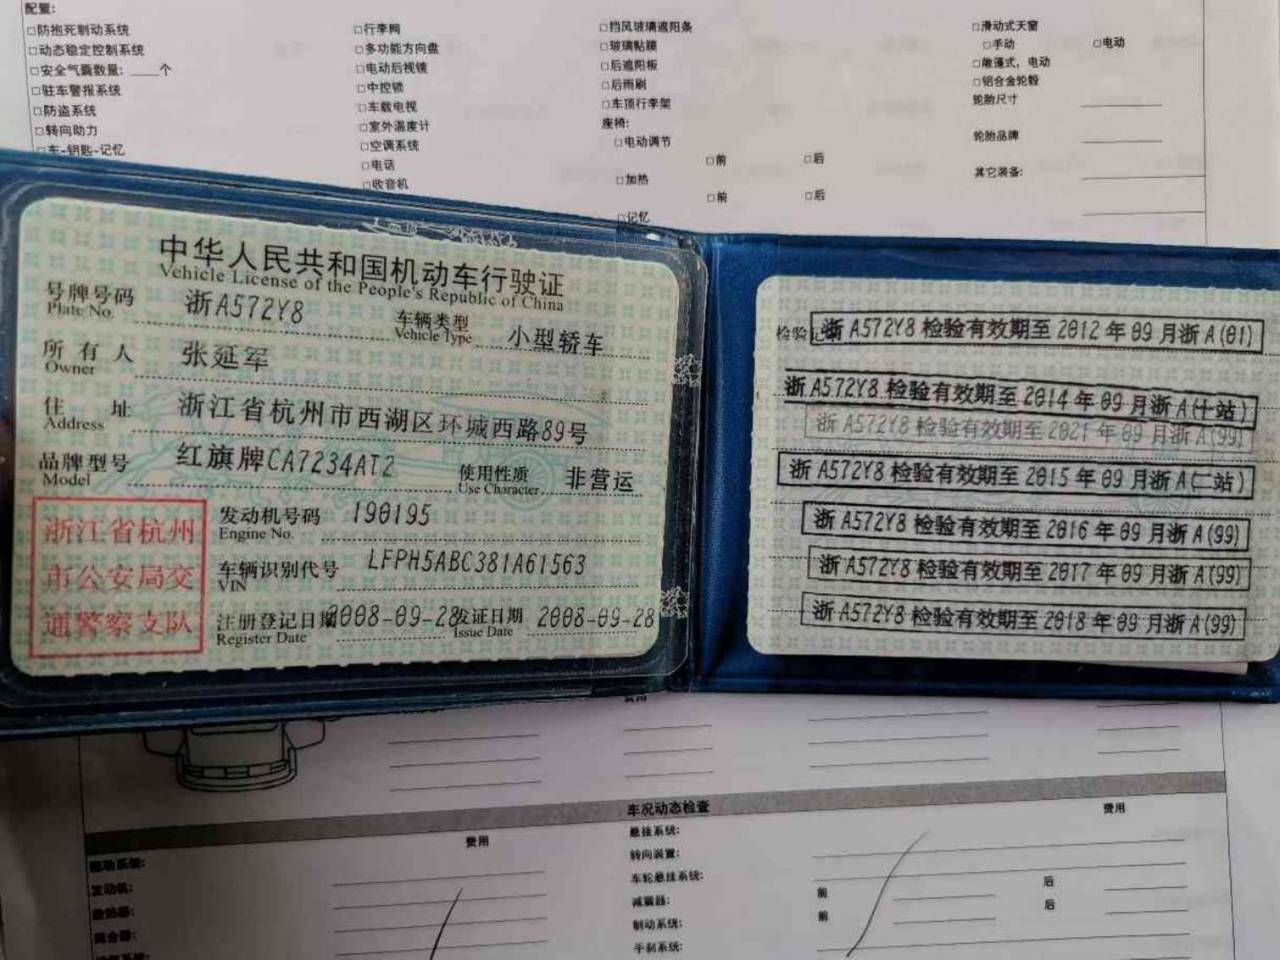 配置:
□防抱死制动系统
□动态稳定控制系统
□安全气囊数量: ___个
□驻车警报系统
□防盗系统
□转向助力
□车-钥匙-记忆
□行李网
□多功能方向盘
□电动后视镜
□中控锁
□车载电视
□室外温度计
□空调系统
□电话
□收音机
□挡风玻璃遮阳条
□玻璃粘膜
□后遮阳板
□后雨刷
□车顶行李架
座椅:
□电动调节
□前 □后
□加热
□前 □后
□记忆
□滑动式天窗
□手动 □电动
□敞篷式，电动
□铝合金轮毂
轮胎尺寸
轮胎品牌
其它装备:
中华人民共和国机动车行驶证
Vehicle License of the People's Republic of China
号牌号码 浙A572Y8 车辆类型 小型轿车
Plate No. Vehicle Type
所有人 张延军
Owner
住址 浙江省杭州市西湖区环城西路89号
Address
品牌型号 红旗牌CA7234AT2 使用性质 非营运
Model Use Character
浙江省杭州
市公安局交
通警察支队
发动机号码 190195
Engine No.
车辆识别代号 LFPH5ABC381A61563
VIN
注册登记日期 2008-09-28 发证日期 2008-09-28
Register Date Issue Date
检验记录
浙A572Y8检验有效期至2012年09月浙A(01)
浙A572Y8检验有效期至2014年09月浙A(十站)
浙A572Y8检验有效期至2021年09月浙A(99)
浙A572Y8检验有效期至2015年09月浙A(二站)
浙A572Y8检验有效期至2016年09月浙A(99)
浙A572Y8检验有效期至2017年09月浙A(99)
浙A572Y8检验有效期至2018年09月浙A(99)
费用
车况动态检查
费用
费用
驱动系统:
发动机:
散热器:
离合器:
悬挂系统:
转向装置:
车轮悬挂系统:
减震器: 前 后
制动系统: 前 后
手刹系统: